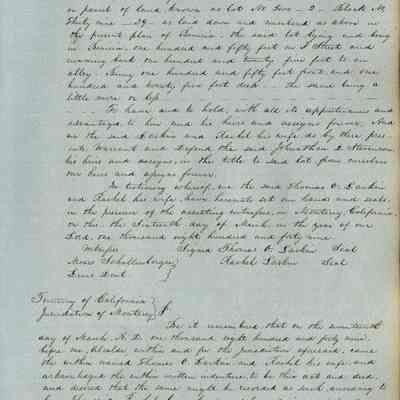 or parcel of land known as lot No Two - 2 - Block No
Thirty nine - 39 - as laid down and numbered as above in
the present plan of Benicia - the said lot lying and being
in Benicia, one hundred and fifty feet on I Street and
running back one hundred and twenty five feet to an
alley. Being one hundred and fifty feet front and one
hundred and twenty five feet deep - the same being a
little more or less
To have, and to hold, with all its appurtenances and
advantages to him and his heirs and assigns forever. And
we the said Larkin and Rachel his wife, do by these pres
ents, Warrant and Defend the said Johnathan D. Stevenson
his heirs and assigns, in the title to said lot from ourselves
our heirs and assigns forever.
In testimony whereof, we the said Thomas O. Larkin
and Rachel his wife, have hereunto set our hands and seals,
in the presence of the assisting witnesses, in Monterey, California,
on this the Sixteenth day of March, in the year of our
Lord, one thousand eight hundred and forty nine
Witnesses Signed Thomas O. Larkin Seal
Moses Schallenberger Rachel Larkin Seal
Dent
Territory of California
Jurisdiction of Monterey
Be it remembered that on the
day of March A.D. one thousand eight hundred and forty nine
before me, Alcalde within and for the jurisdiction aforesaid, came
the within named Thomas O. Larkin and Rachel his wife and
acknowledged the within written indenture, to be their act and deed,
and desired that the same might be recorded as such according to